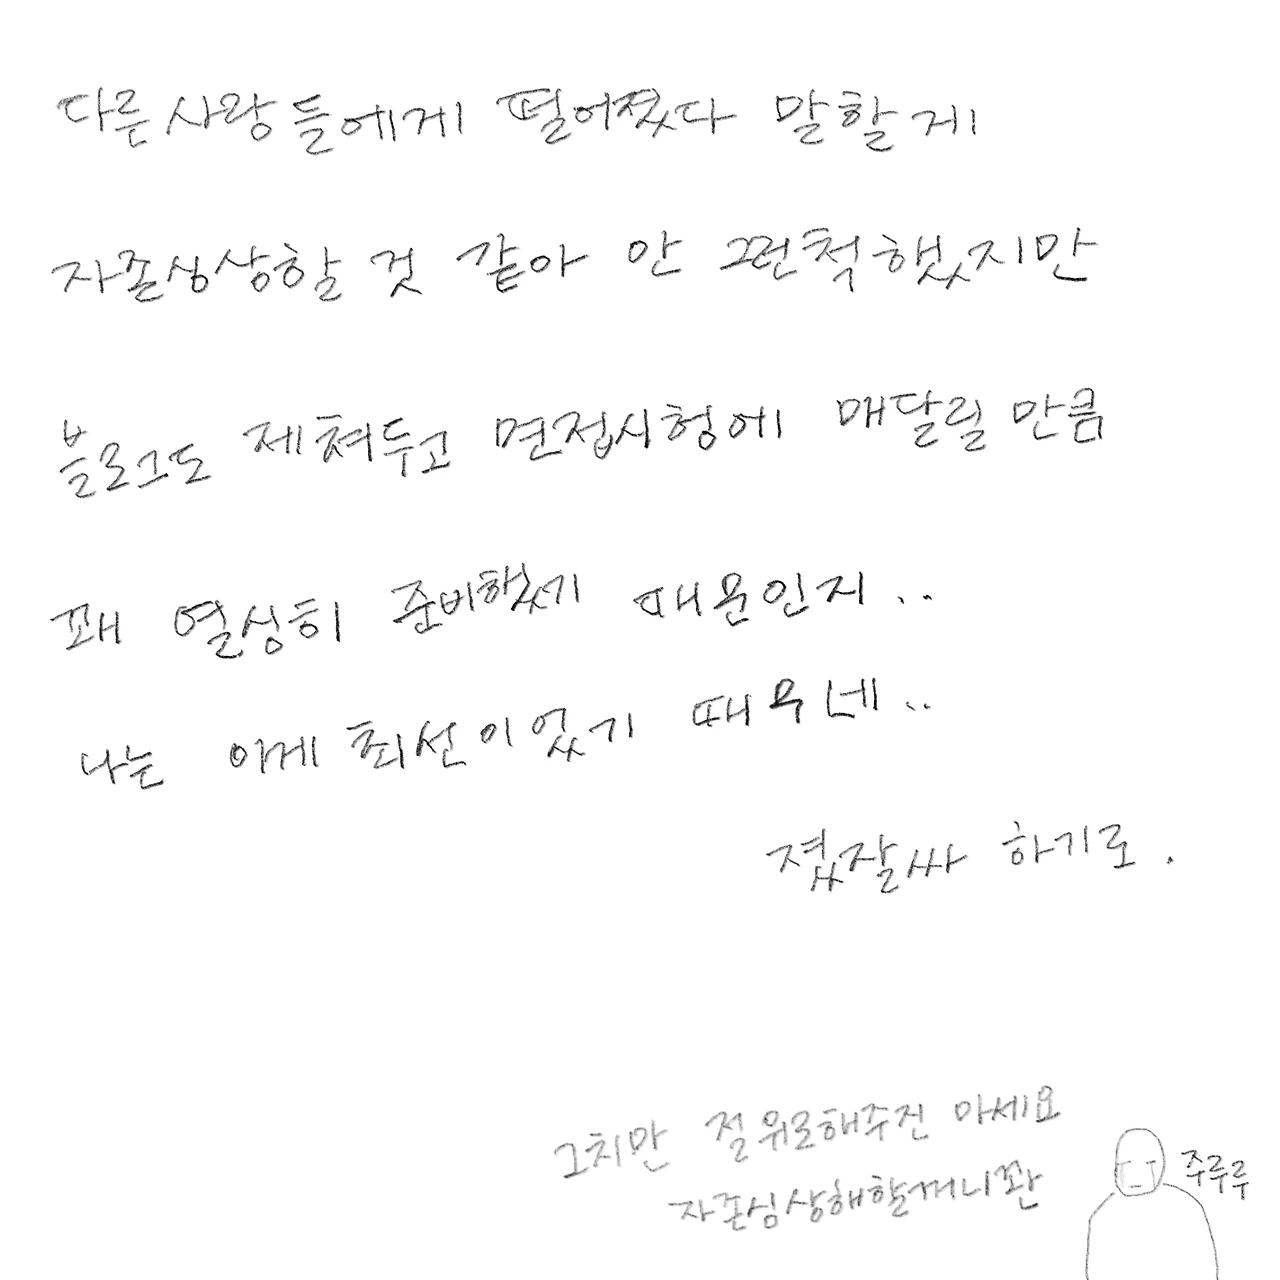 다른 사람들에게 떨어졌다 말할 게
자존심상할 것 같아 안 그런척했지만
블로그도 제쳐두고 면접시험에 매달릴 만큼
꽤 열심히 준비했기 때문인지..
나는 이게 최선이었기 때무네..
졌잘싸 하기로.
그치만 절 위로해주진 마세요
자존심상해할꺼니꽌
주루루